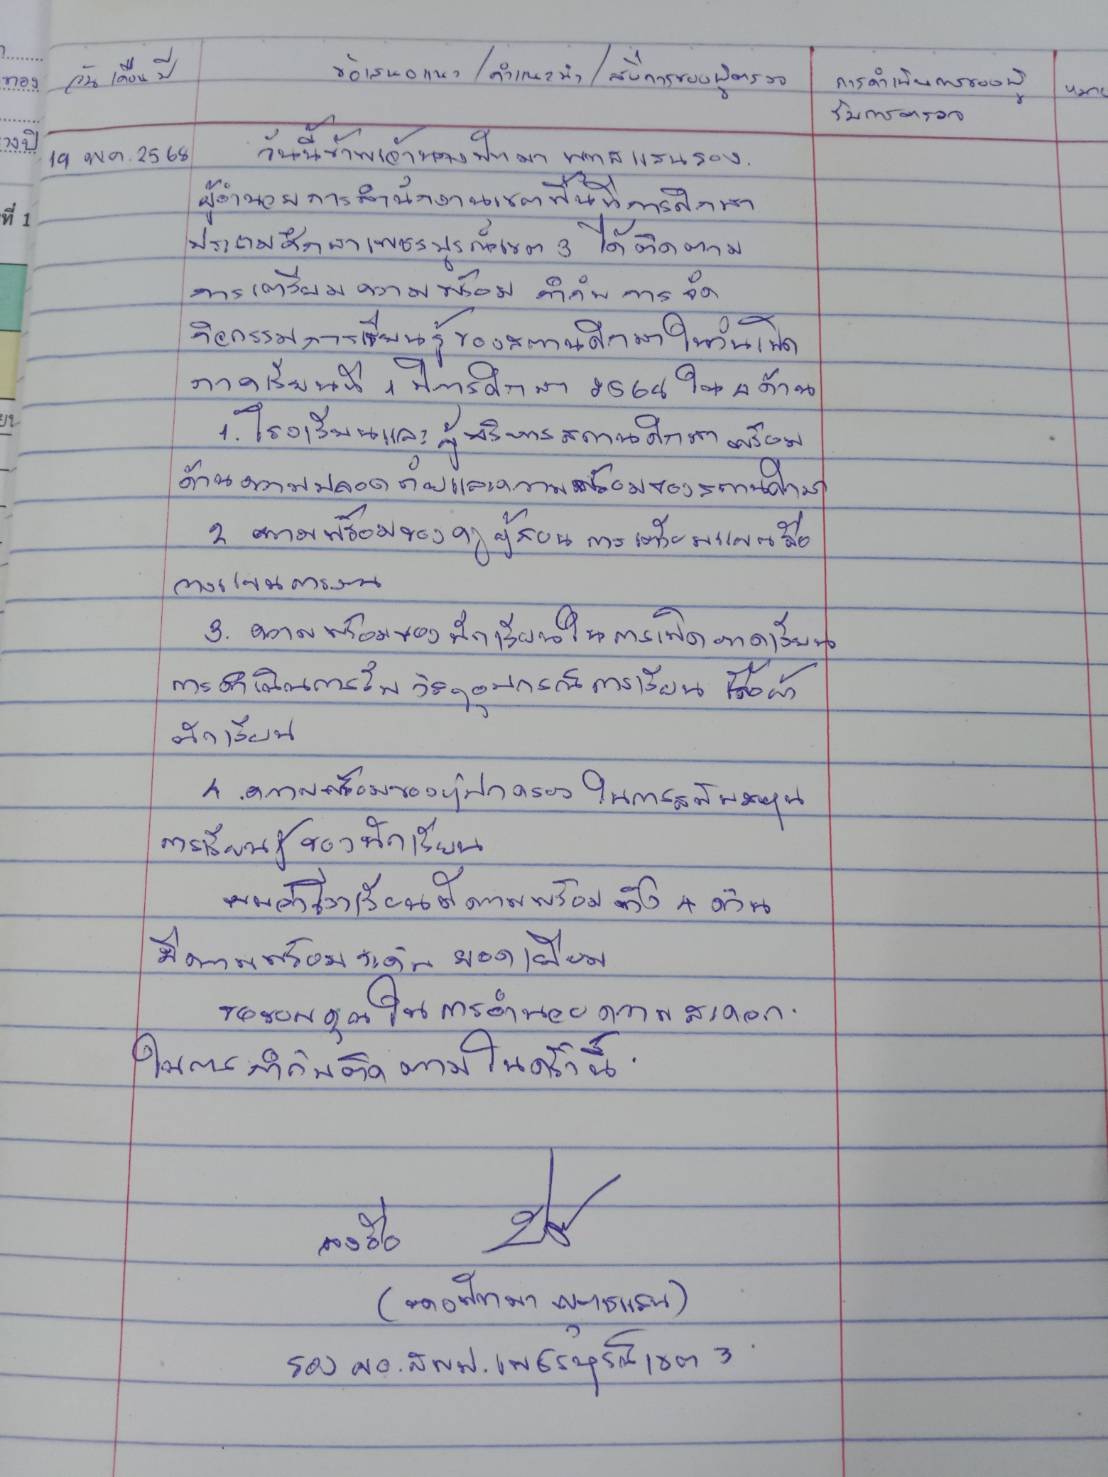 วัน เดือน ปี
ข้อเสนอแนะ / คำแนะนำ / สั่งการของผู้ตรวจ
การดำเนินการของผู้
รับการตรวจ
หมาย
19 พ.ค. 2568
วันนี้ข้าพเจ้านางปัทมา รอง.
ผู้อำนวยการสำนักงานเขตพื้นที่การศึกษา
ประถมศึกษาเพชรบูรณ์เขต 3 ได้ติดตาม
การเตรียมความพร้อม กำกับ การจัด
กิจกรรมการเรียนรู้ของสถานศึกษาในวันเปิด
ภาคเรียนที่ 1 ปีการศึกษา 2568 ใน 4 ด้าน
1. โรงเรียนและผู้บริหารสถานศึกษา พร้อม
ด้านความปลอดภัยและความพร้อมของสถานศึกษา
2 ความพร้อมของครูผู้สอน การเตรียมแผน สื่อ
วางแผนการงาน
3. ความพร้อมของนักเรียนในการเปิดภาคเรียน
การดำเนินการรับ วัสดุอุปกรณ์การเรียน เสื้อผ้า
นักเรียน
4. ความพร้อมของผู้ปกครอง ในการสนับสนุน
การเรียนรู้ ของนักเรียน
พบว่าโรงเรียนมีความพร้อม ทั้ง 4 ด้าน
มีความพร้อมระดับ ยอดเยี่ยม
ขอขอบคุณในการอำนวยความสะดวก.
ในการกำกับติดตามในครั้งนี้.
ลงชื่อ
(นางปัทมา )
รอง ผอ.สพป.เพชรบูรณ์เขต 3
ที่ 1